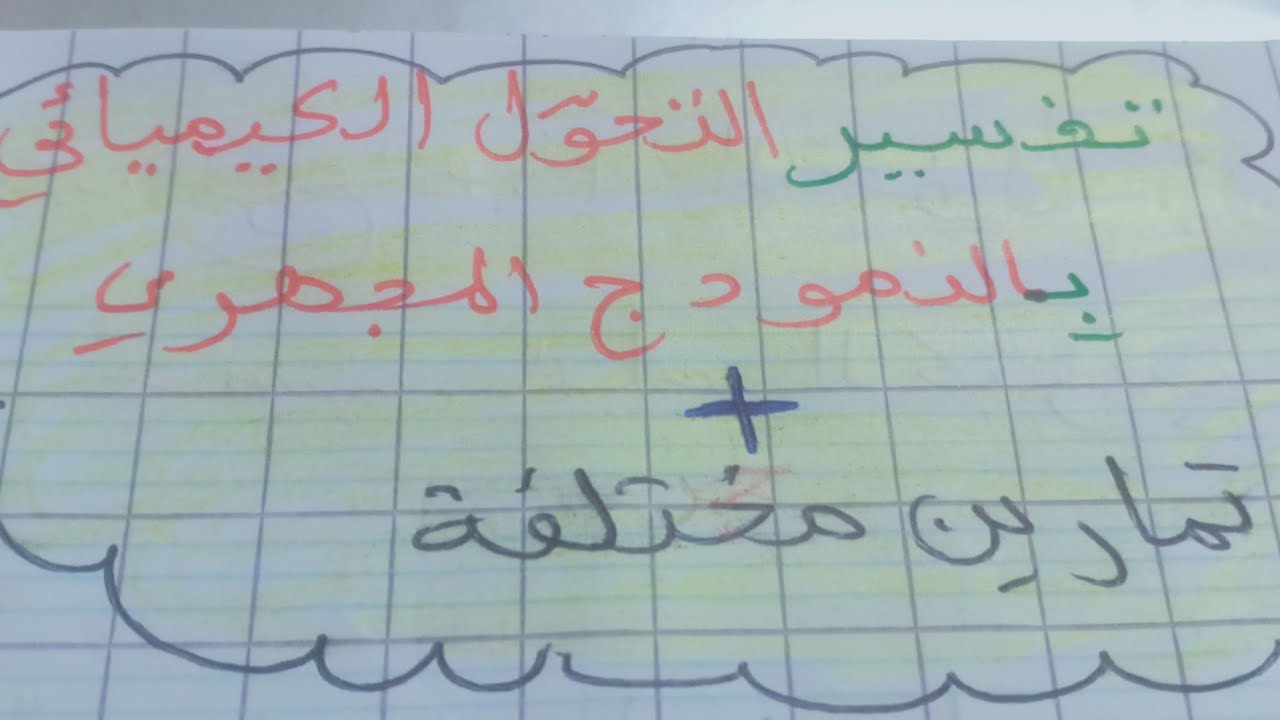 تفسير التحوّل الكيميائي
بالنموذج المجهري
+
تمارين مختلفة